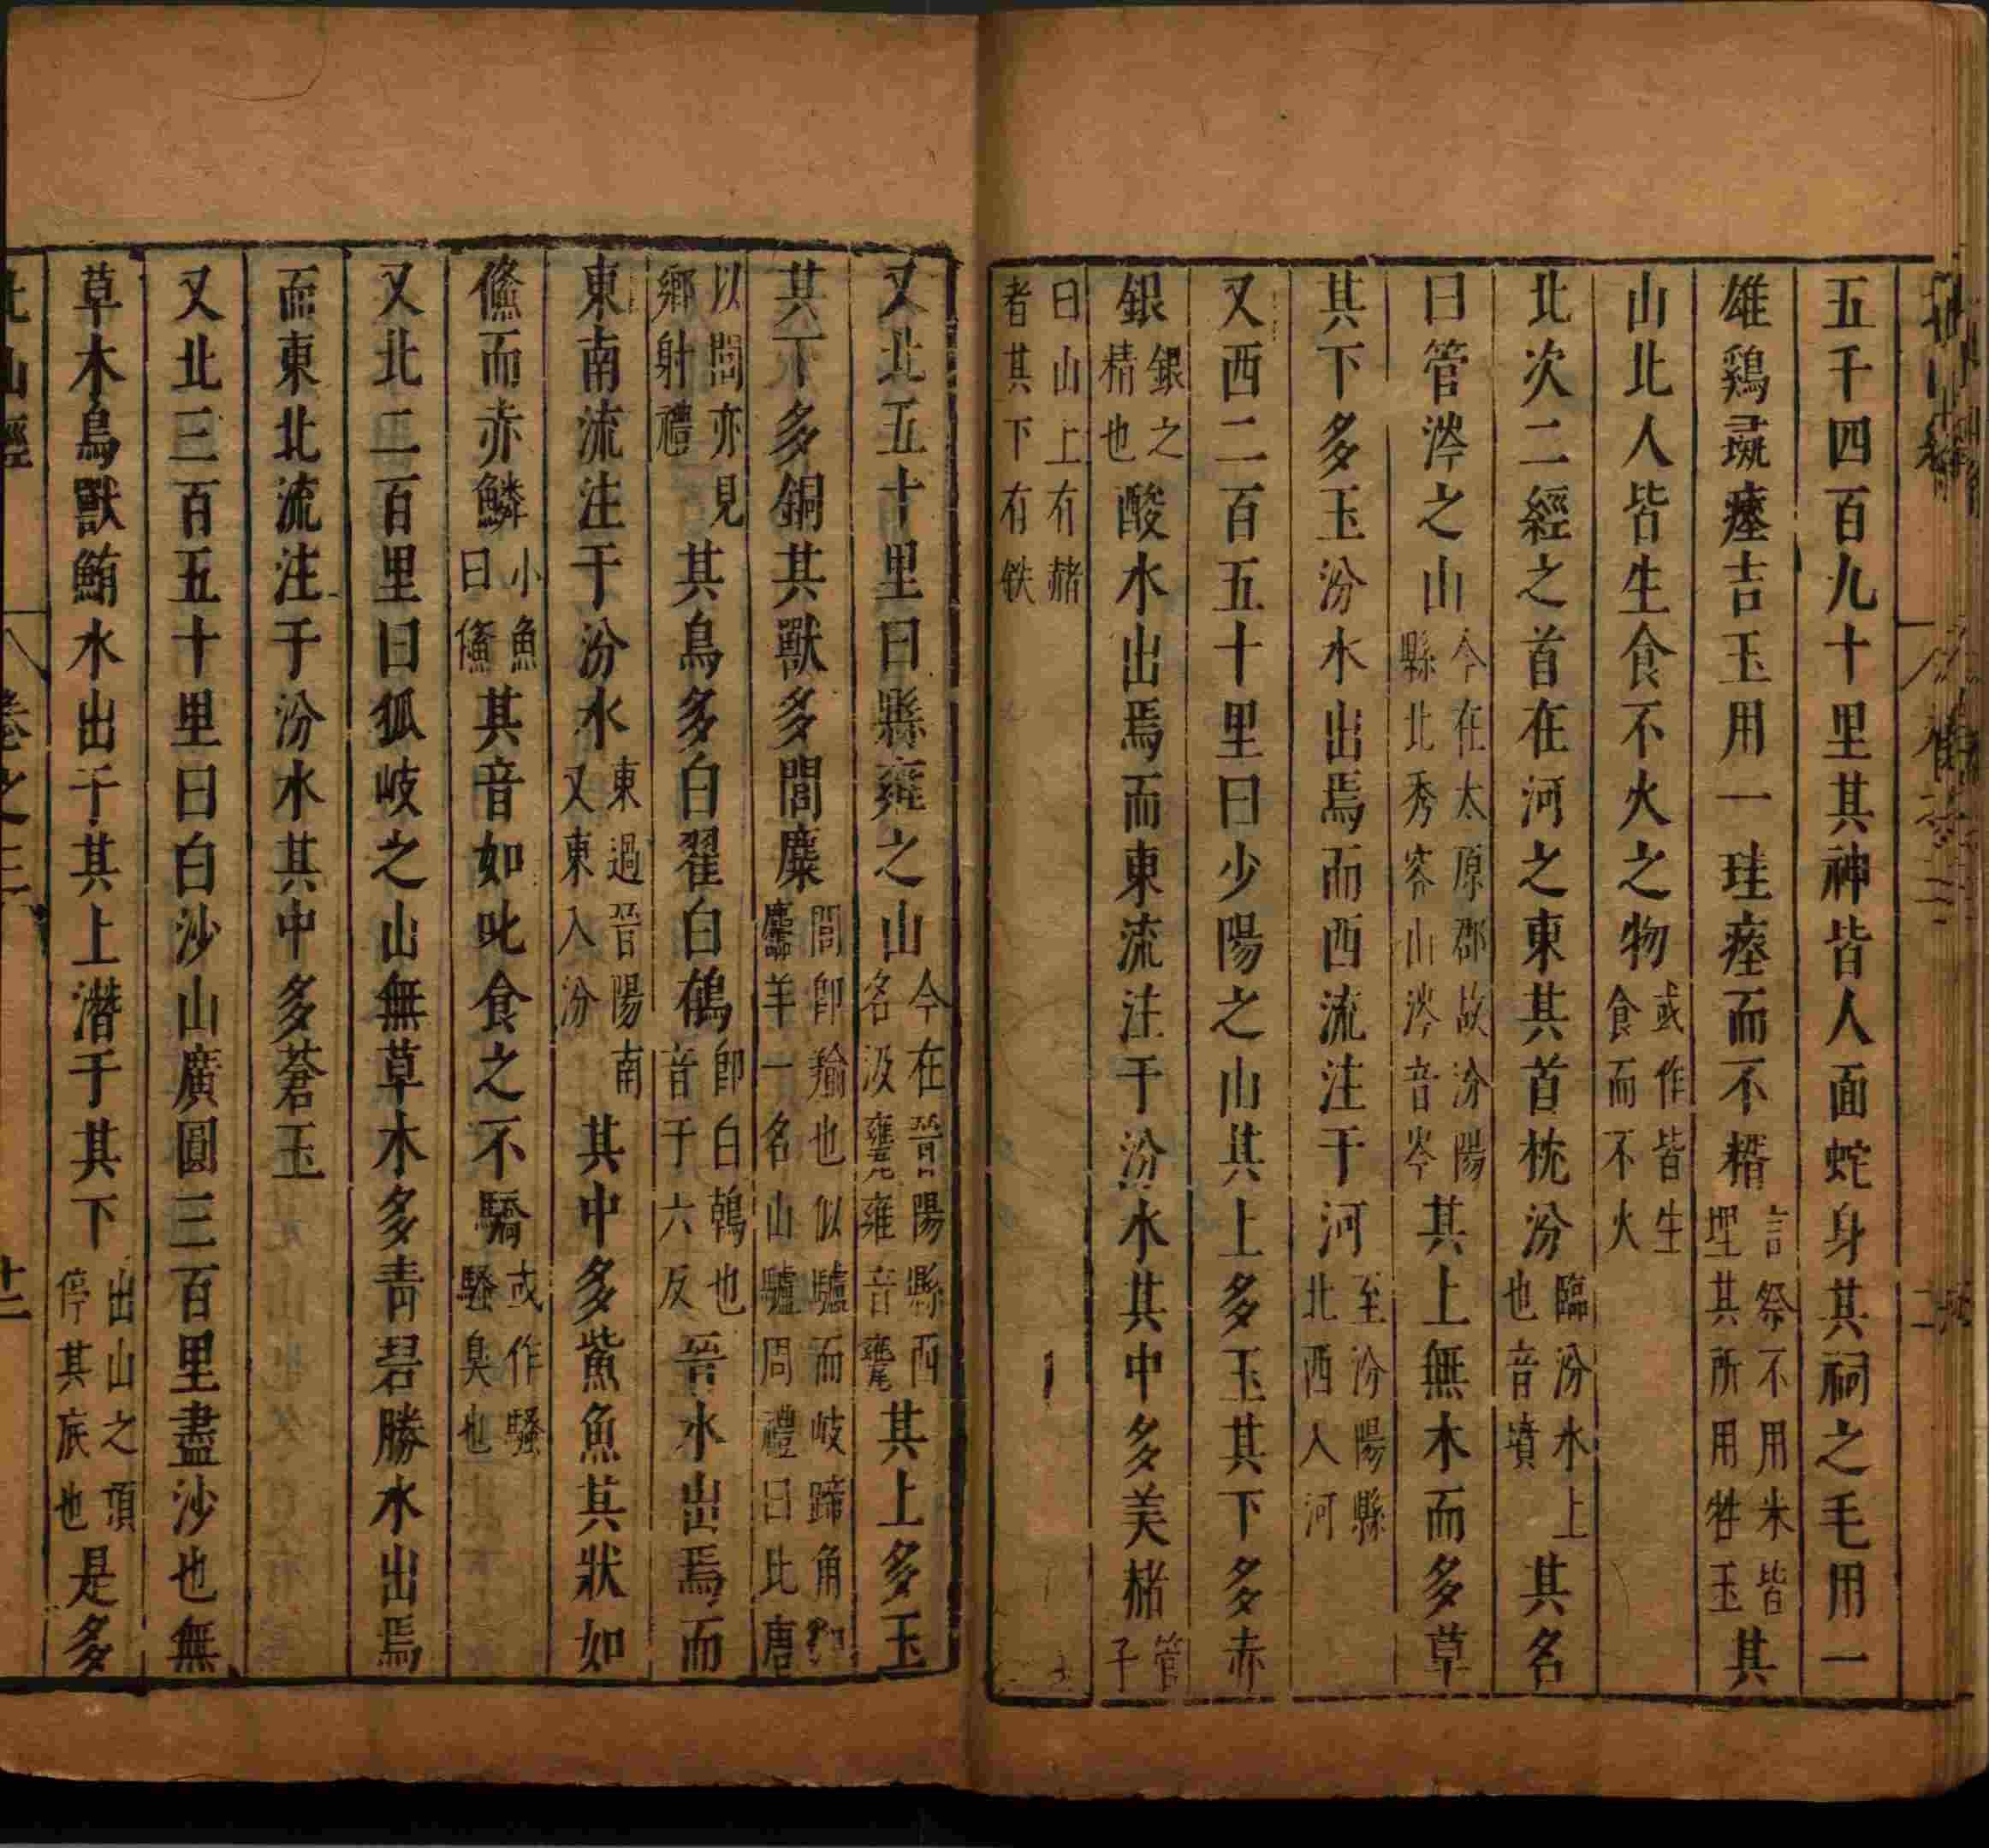 五千四百九十里其神皆人面蛇身其祠之毛用一
雄鷄彘瘞吉玉用一珪瘞而不糈言祭不用米皆埋其所用牲玉其
山北人皆生食不火之物或作皆生食而不火
北次二經之首在河之東其首枕汾臨汾水上也音墳其名
曰管涔之山今在太原郡故汾陽縣北秀容山涔音岑其上無木而多草
其下多玉汾水出焉而西流注于河至汾陽縣北西入河
又西二百五十里曰少陽之山其上多玉其下多赤
銀銀之精也酸水出焉而東流注于汾水其中多美赭管子
曰山上有赭者其下有鉄
又北五十里曰縣雍之山今在晉陽縣西名汲甕雍音甕其上多玉
其下多銅其獸多閭麋閭卽羭也似驢而岐蹄角如麢羊一名山驢周禮曰北唐
以閭亦見鄉射禮其鳥多白翟白鵺卽白鶾也音于六反晉水出焉而
東南流注于汾水東過晉陽南又東入汾其中多鮆魚其狀如
儵而赤鱗小魚曰儵其音如叱食之不驕或作騷騷臭也
又北二百里曰狐岐之山無草木多青碧勝水出焉
而東北流注于汾水其中多蒼玉
又北三百五十里曰白沙山廣圓三百里盡沙也無
草木鳥獸鮪水出于其上潛于其下出山之頂停其底也是多
北山經 卷之三 十二